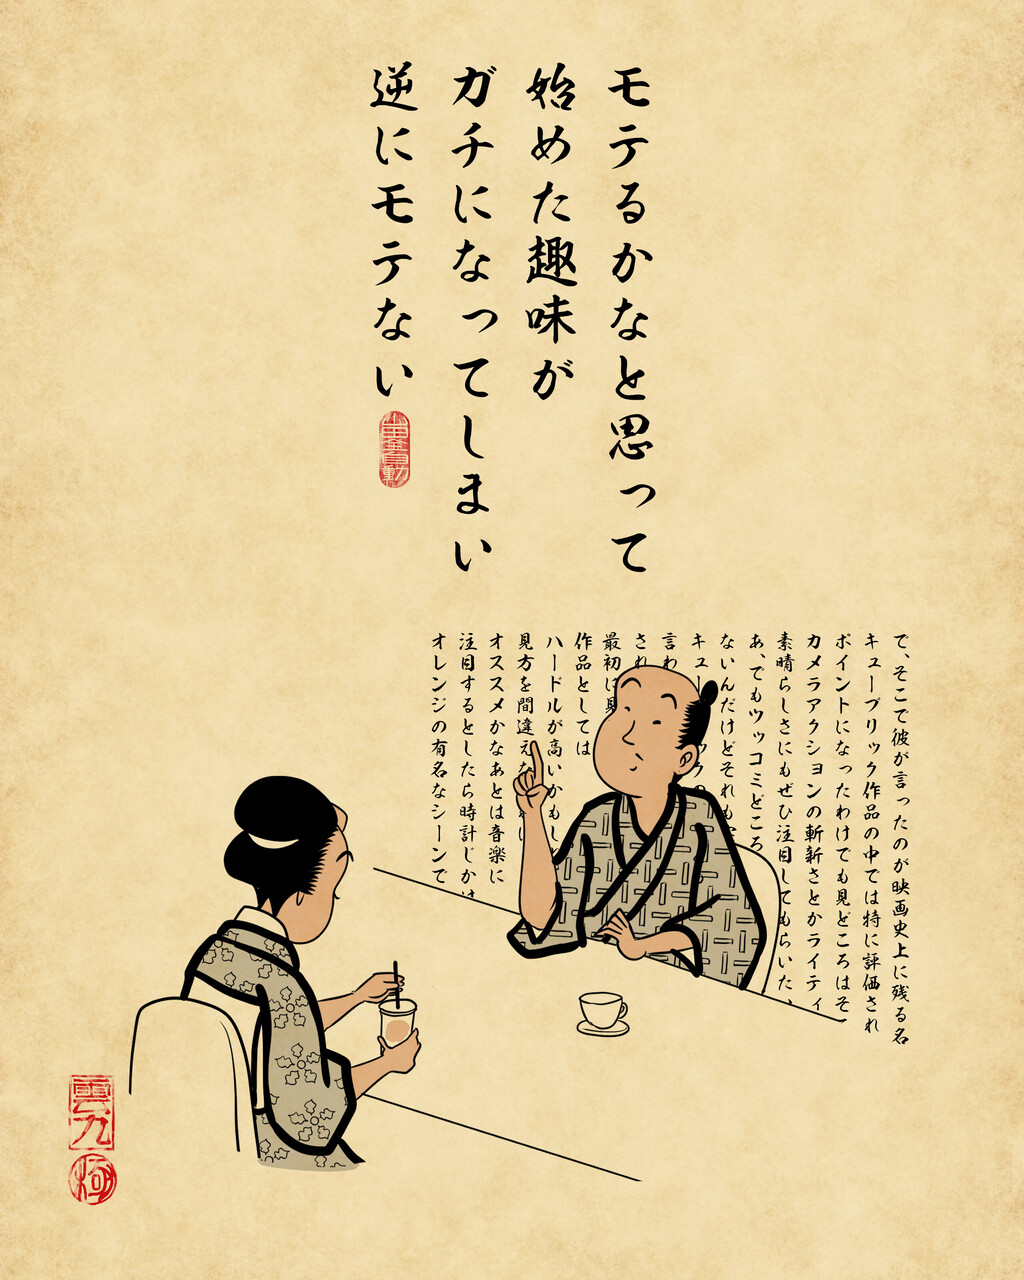 モテるかなと思って
始めた趣味が
ガチになってしまい
逆にモテない
で、そこで彼が言ったのが映画史上に残る名
キューブリック作品の中では特に評価され
ポイントになったわけでも見どころはそ
カメラアクションの斬新さとかライティ
素晴らしさにもぜひ注目してもらいた、
あ、でもツッコミどころ
ないんだけどそれも
キュー
言わ
され
最初に見
作品としては
ハードルが高いかもし
見方を間違えな
オススメかなあとは音楽に
注目するとしたら時計じかけ
オレンジの有名なシーンで